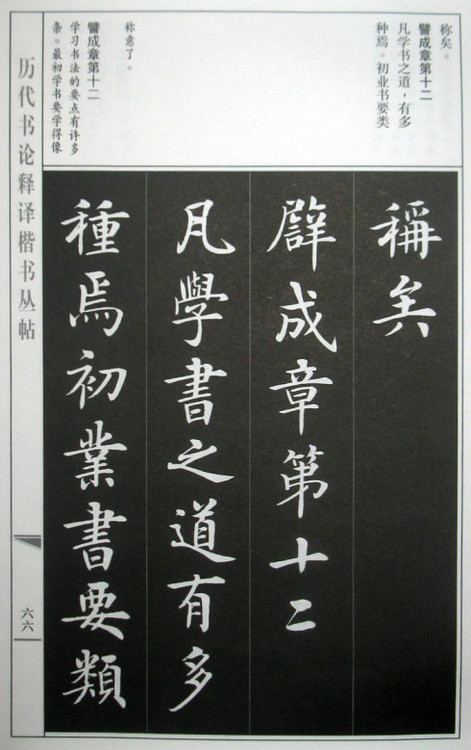 称矣。
譬成章第十二
凡学书之道，有多
种焉。初业书要类
称意了。
譬成章第十二
学习书法的要点有许多
条。最初学书要学得像
稱矣
譬成章第十二
凡學書之道有多
種焉初業書要類
历代书论释译楷书丛帖
六六